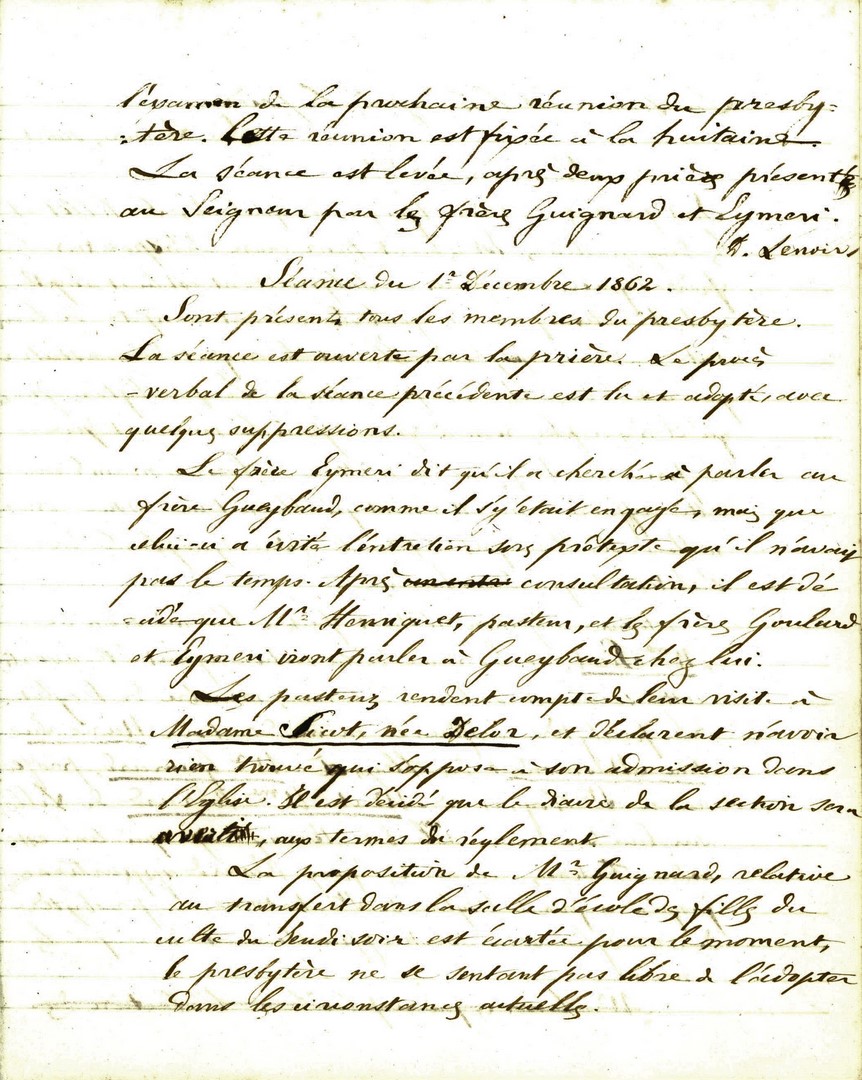 l'examen de la prochaine réunion du presby=
=tère. Cette réunion est fixée à la huitaine.
La séance est levée, après deux prières présentées
au Seigneur par les frères Guignard et Eymeri.
D. Lenoir
Séance du 1er Décembre 1862.
Sont présents tous les membres du presbytère.
La séance est ouverte par la prière. Le procès
-verbal de la séance précédente est lu et adopté, avec
quelques suppressions.
Le frère Eymeri dit qu'il a cherché à parler au
frère Gueybaud, comme il s'y était engagé, mais que
celui-ci a évité l'entretien sous prétexte qu'il n'avait
pas le temps. Après consultation, il est dé
-cidé que Mr Henriquet, pasteur, et les frères Goulard
et Eymeri iront parler à Gueybaud chez lui.
Les pasteurs rendent compte de leur visite à
Madame Picot, née Delor, et déclarent n'avoir
rien trouvé qui s'oppose à son admission dans
l'Eglise. Il est décidé que le diacre de la section sera
averti, aux termes du réglement.
La proposition de Mr Guignard, relative
au transfert dans la salle d'école des filles du
culte du Jeudi soir est écartée pour le moment,
le presbytère ne se sentant pas libre de l'adopter
dans les circonstances actuelles.